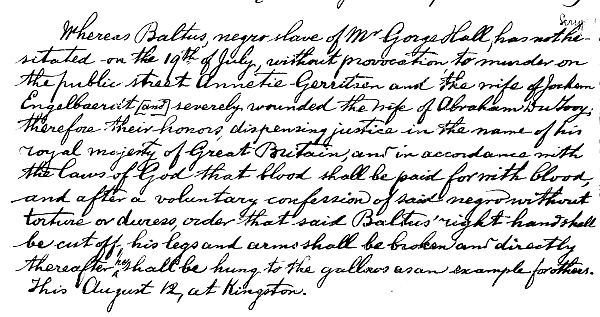 Whereas Baltus, negro slave of Mr Gorge Hall, has not he-
sitated on the 19th of July, without provocation to murder on
the public street Annetie Gerritsen and the wife of Jochem
Engelbaercit [and] severely wounded the wife of Abraham
therefore their honors, dispensing justice in the name of his
royal majesty of Great Britain, and in accordance with
the laws of God that blood shall be paid for with blood,
and after a voluntary confession of said negro without
torture or duress, order that said Baltus' right hand shall
be cut off, his legs and arms shall be broken and directly
thereafter he shall be hung to the gallows as an example for others.
This August 12, at Kingston.